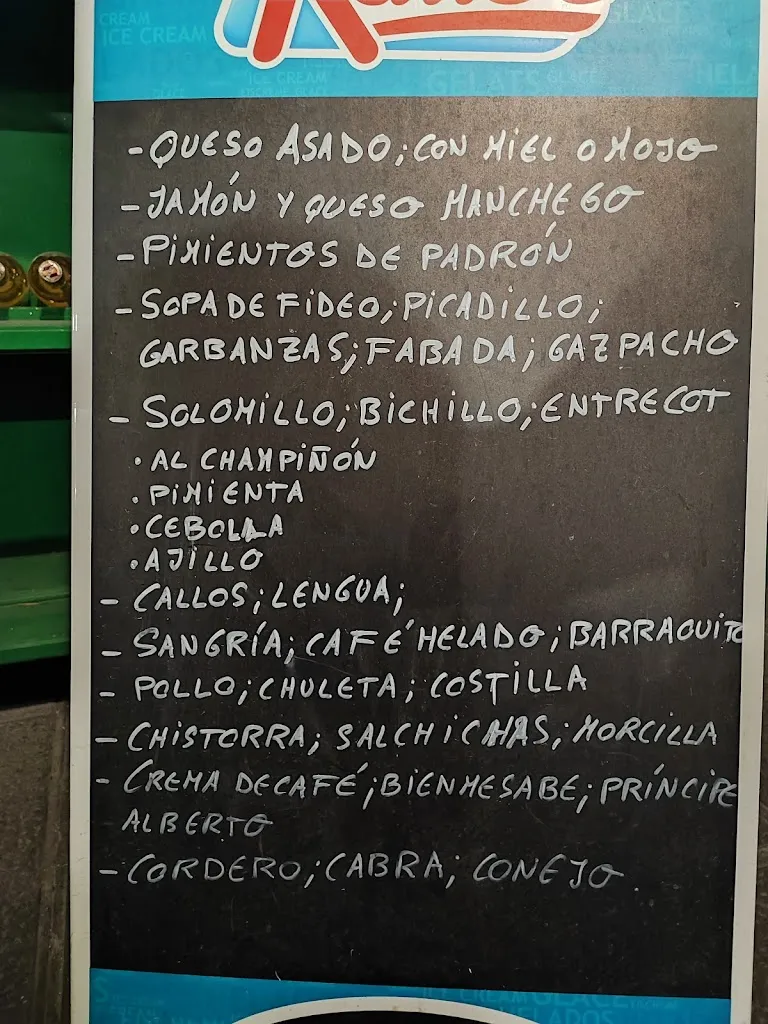 CREAM
ICE CREAM
GLACE
ICE CREAM
GELATS GLACE
- QUESO ASADO; CON MIEL O MOJO
- JAMÓN Y QUESO MANCHEGO
- PIMIENTOS DE PADRÓN
- SOPA DE FIDEO; PICADILLO;
GARBANZAS; FABADA; GAZPACHO
- SOLOMILLO; BICHILLO; ENTRECOT
· AL CHAMPIÑÓN
· PIMIENTA
· CEBOLLA
· AJILLO
- CALLOS; LENGUA;
- SANGRÍA; CAFÉ HELADO; BARRAQUITO
- POLLO; CHULETA; COSTILLA
- CHISTORRA; SALCHICHAS; MORCILLA
- CREMA DE CAFÉ; BIENMESABE; PRÍNCIPE
ALBERTO
- CORDERO; CABRA; CONEJO
ICE CREAM GLACE
HELADOS